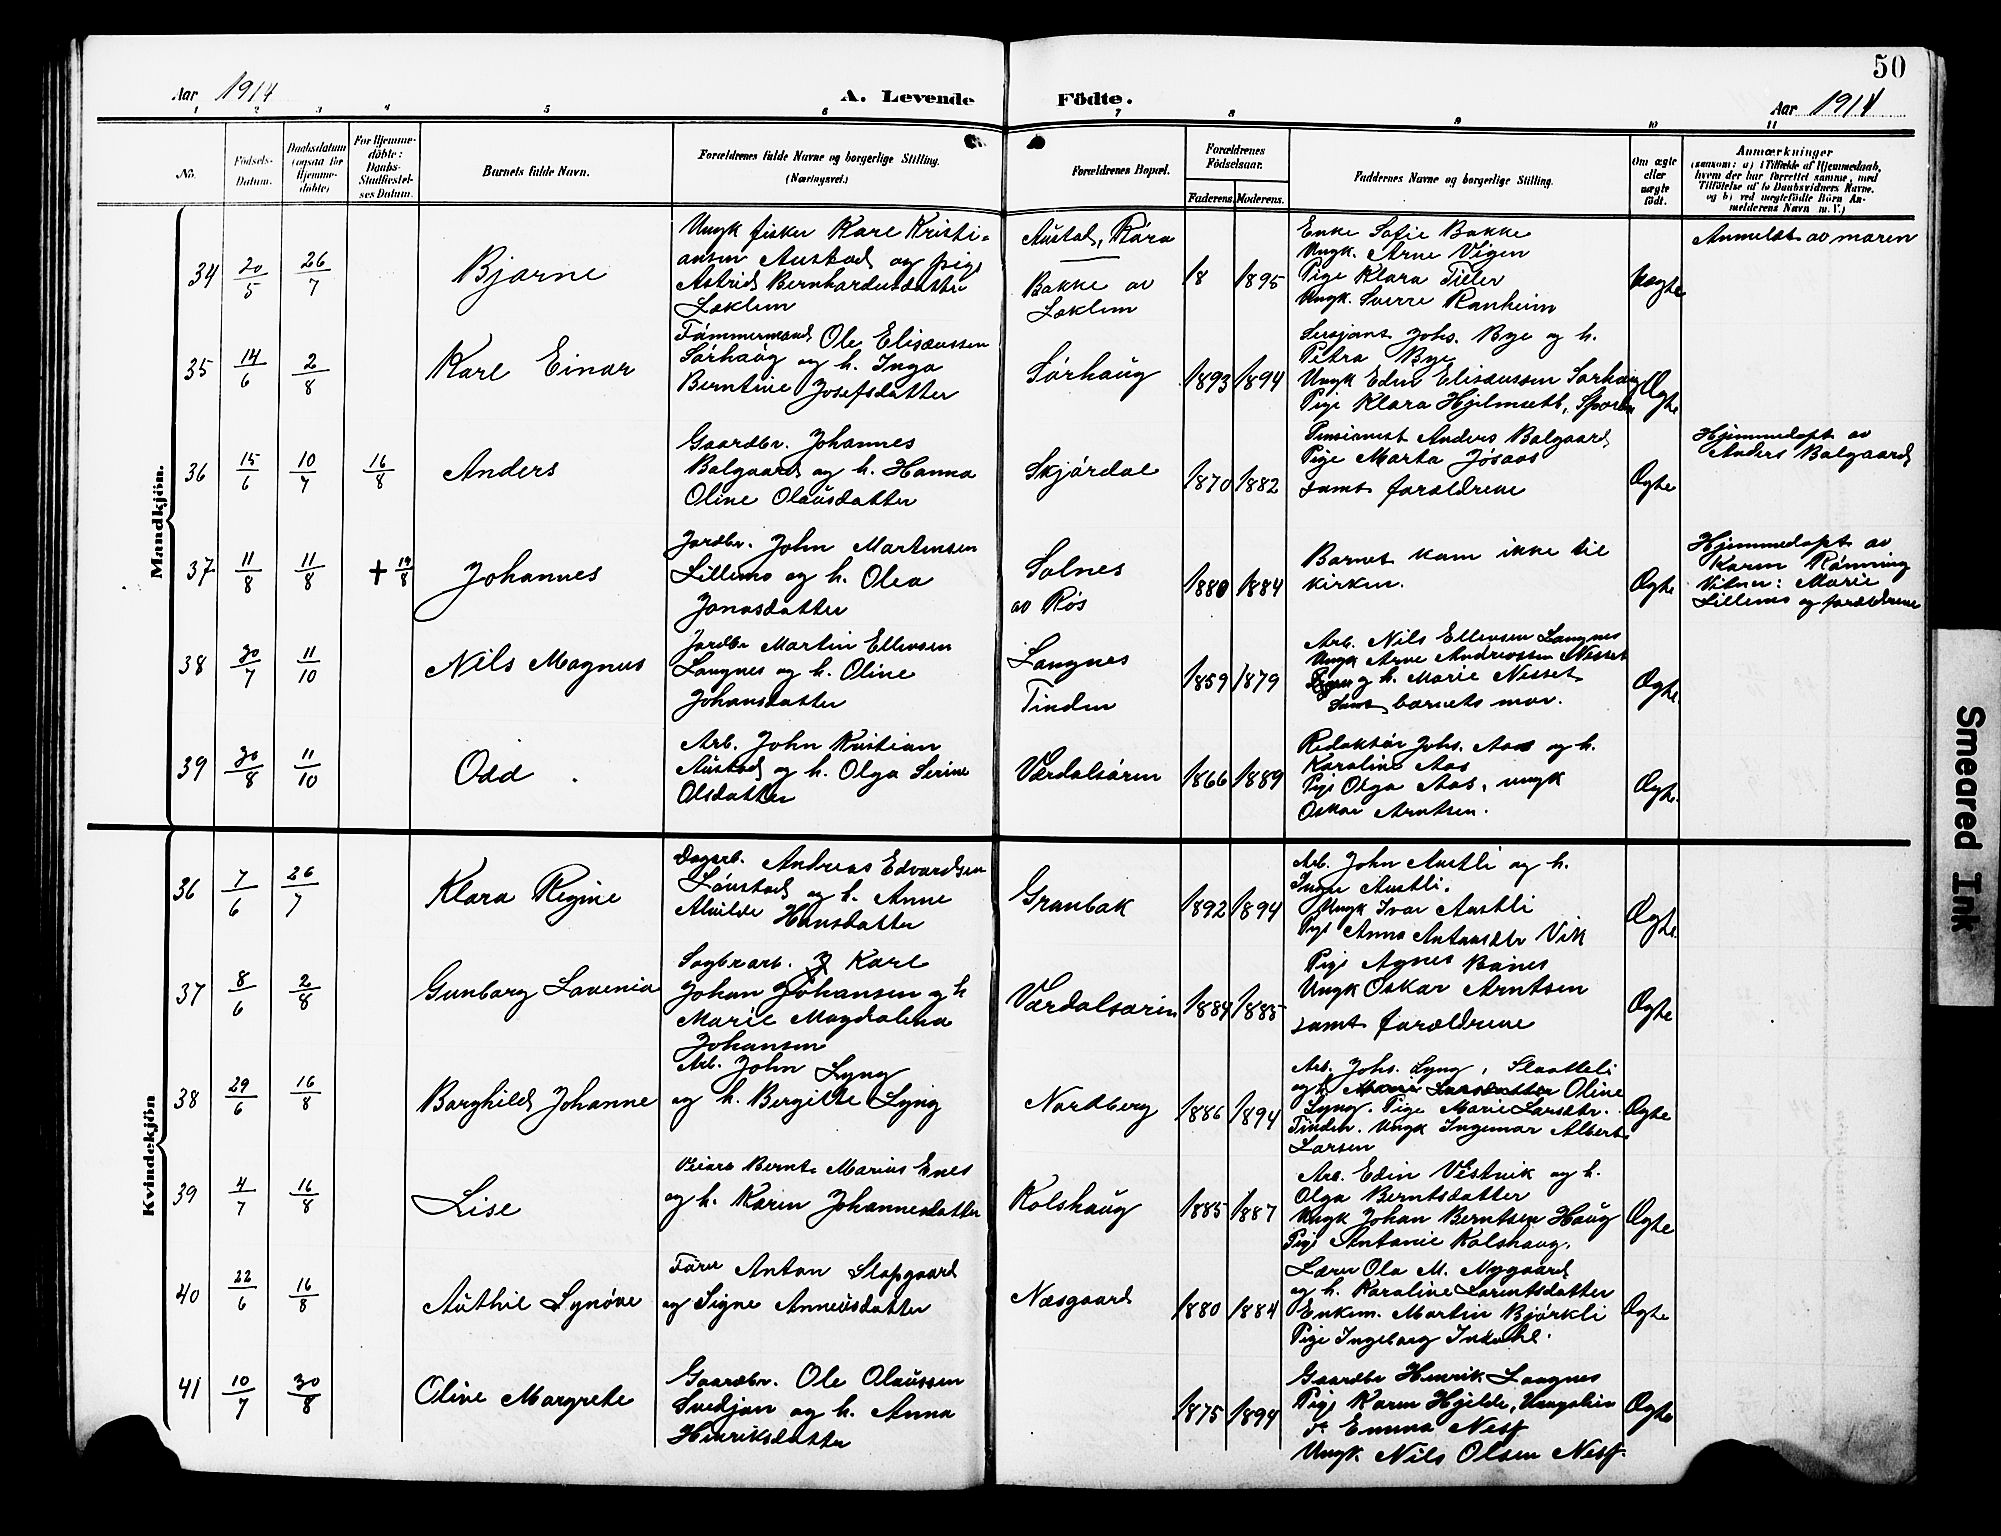 50
Aar 1914
A. Levende
Födte.
Aar 1914
1 2 3 4 5 6 7 8 9 10 11
No.
Födsels-
Datum.
Daabsdatum
(ogsaa for
Hjemme-
döbte)
For Hjemme-
döbte:
Daabs-
Stadfæstel-
ses Datum.
Barnets fulde Navn.
Forældrenes fulde Navne og borgerlige Stilling.
(Næringsvei.)
Forældrenes Bopæl.
Forældrenes
Födselsaar.
Faderens.
Moderens.
Faddernes Navne og borgerlige Stilling.
Om ægte
eller
uægte
födt.
Anmærkninger
(saasom: a) i Tilfælde af Hjemmedaab,
hvem der har forrettet samme, med
Tilföielse af to Daabsvidners Navne.
og b) ved uægtefödte Börn An-
melderens Navn m. V.)
Mandkjön.
34
20/5
26/7
Bjarne
Ungk fisker Karl Kristi-
ansen Austad og pige
Astrid Bernhardusdatter
Leklem
Austad, Röra
Bakke av
Leklem
18
1895
Enke Sofie Bakke
Ungk. Arne Vigen
Pige Klara Tiller
Ungk. Sverre Ranheim
Uægte
Anmeldt av moren
35
14/6
2/8
Karl Einar
Tömmermand Ole Eliseussen
Sörhaug og h. Inga
Berntine Josefsdatter
Sörhaug
1893
1894
Sersjant Johs. Bye og h.
Petra Bye
Ungk Edin Eliseussen Sörhaug
Pige Klara Hjelmseth,
Ægte
36
15/6
10/7
16/8
Anders
Gaardbr. Johannes
Balgaard og h. Hanna
Oline Olausdatter
Skjördal
1870
1882
Pensionist Anders Balgaard
Pige Marta Jösaas
samt forældrene
Ægte
Hjemmedöpt av
Anders Balgaard
37
11/8
11/8
+ 14/8
Johannes
Jordbr. John Martinsen
Lillemo og h. Olea
Jonasdatter
Solnes
av Rös
1880
1884
Barnet kom ikke til
kirken.
Ægte
Hjemmedöpt av
Karen Rönning
Vitner: Marie
Lillemo og forældrene
38
30/7
11/10
Nils Magnus
Jordbr Martin Ellevsen
Langnes og h. Oline
Johansdatter
Langnes
Tinden
1859
1879
Arb. Nils Ellevsen Langnes
Ungk Arne Andreassen Nesset
og h. Marie Nesset
Samt barnets mor.
Ægte
39
30/8
11/10
Odd
Arb. John Kristian
Austad og h. Olga Serine
Olsdatter
Værdalsören
1866
1889
Redaktör Johs. Aas og h.
Karoline Aas
Pige Olga Aas, ungk
Oskar Arntsen.
Ægte
Kvindekjön
36
7/6
26/7
Klara Regine
Dagarb. Andreas Edvardsen
Löustad og h. Anne
Alvilde Hansdatter
Granbak
1892
1894
Arb. John Austli og h.
Inger Austli.
Ungk Ivar Austli
Pige Anna Antonsdtr Vik
Ægte
37
8/6
2/8
Gunborg Lavenia
Sagbrarb. Karl
Johan Johansen og h
Marie Magdalena
Johansen
Værdalsören
1884
1885
Pige Agnes Banes
Ungk Oskar Arntsen
samt forældrene
Ægte
38
29/6
16/8
Borghild Johanne
Arb. John Lyng
og h. Bergitte Lyng
Nordberg
1886
1894
Arb. Johs. Lyng, Slaatteli
og h. Marie Larsdatter Oline
Lyng. Pige Marie Larsdtr.
Tinden. Ungk Ingemar Albert
Larsen
Ægte
39
4/7
16/8
Lise
Bernt Marius Enes
og h. Karin Johannesdatter
Kolshaug
1885
1887
Arb. Edin Vestvik og h.
Olga Berntsdatter
Ungk Johan Berntsen Haug
Pige Antonie Kolshaug.
Ægte
40
22/6
16/8
Authil Synöve
Anton Slapgaard
og Signe Anneusdatter
Næsgaard
1880
1884
Lærer Ola M. Nygaard
og h. Karoline Lorentsdatter
Enkem. Martin Björkli
Pige Ingeborg Indahl.
Ægte
41
10/7
30/8
Oline Margrete
Gaardbr. Ole Olaussen
Svedjan og h. Anna
Henriksdatter
1875
1894
Gaardbr Henrik Langnes
Pige Karen Hjelde,
Emma Ness
Ungk. Nils Olsen Ness.
Ægte
Smeared Ink